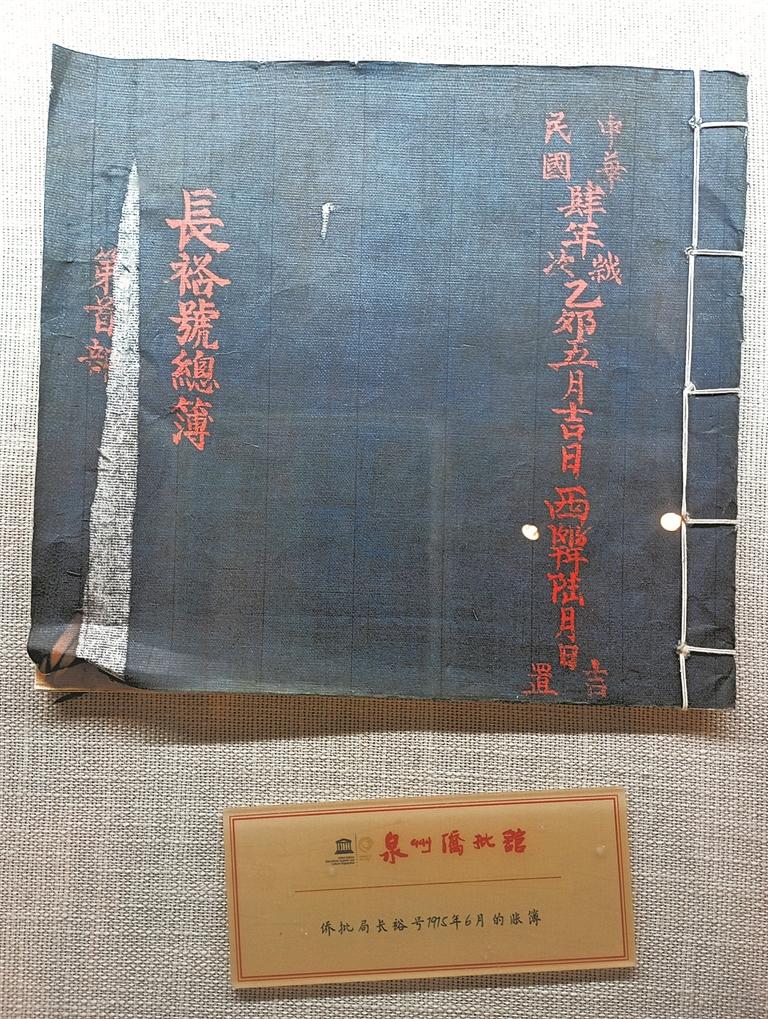 中華民國肆年歲次乙夘五月吉日西1915年陸月日吉置
長裕號總簿
第首部
泉州僑批館
侨批局长裕号1915年6月的账簿